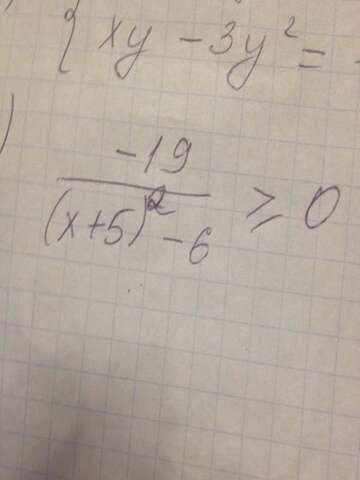 { xy - 3y² =
)
-19
(x+5)² - 6
≥ 0